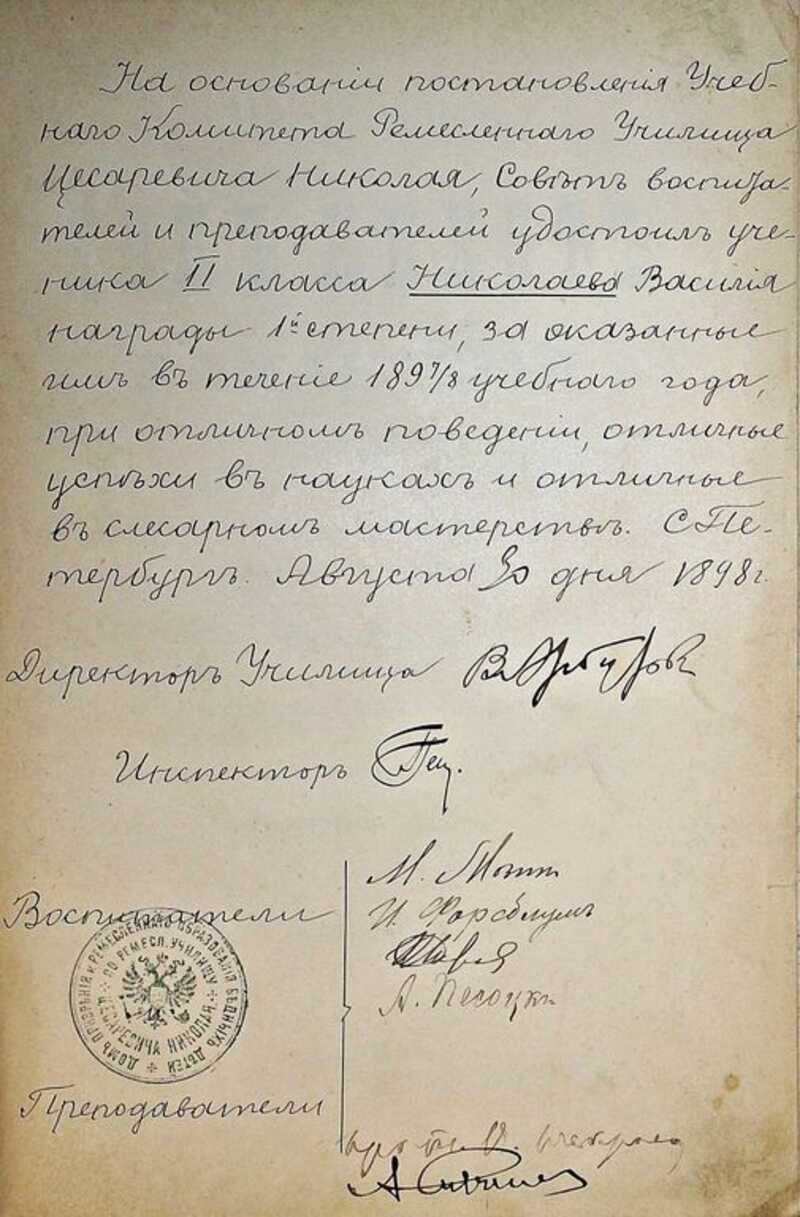 На основаніи постановленія Учеб-
наго Комитета Ремесленнаго Училища
Цесаревича Николая, Совѣтъ воспита-
телей и преподавателей удостоилъ уче-
ника II класса Николаева Василія
награды 1й степени, за оказанные
имъ въ теченіе 1897/8 учебнаго года,
при отличномъ поведеніи, отличные
успѣхи въ наукахъ и отличные
въ слесарномъ мастерствѣ. С.Пе-
тербургъ. Августа дня 1898 г.
Директоръ Училища
Инспекторъ
М.
И.
А. Песоцкій
Воспитатели
ДОМЪ ПРИЗРѢНІЯ И РЕМЕСЛЕННАГО ОБРАЗОВАНІЯ БѢДНЫХЪ ДѢТЕЙ
ПО РЕМЕСЛ. УЧИЛИЩУ
ЦЕСАРЕВИЧА НИКОЛАЯ
Преподаватели